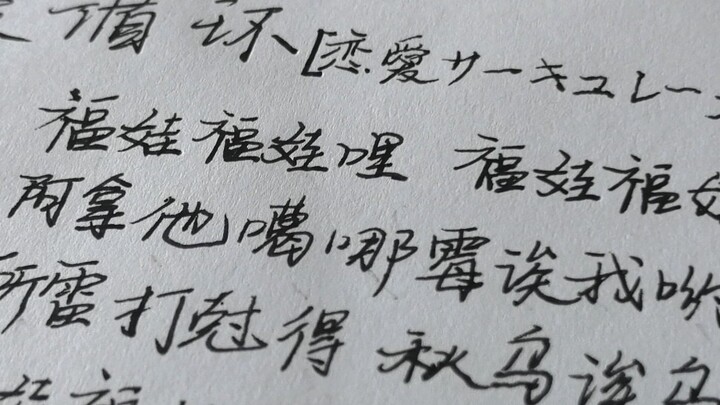 循环[恋爱サーキュレー
福娃福娃哩 福娃福
阿拿他噶哪霉诶我哟
所雷打尅得 秋鸟诶